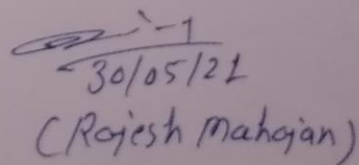 30/05/21
(Rajesh Mahajan)